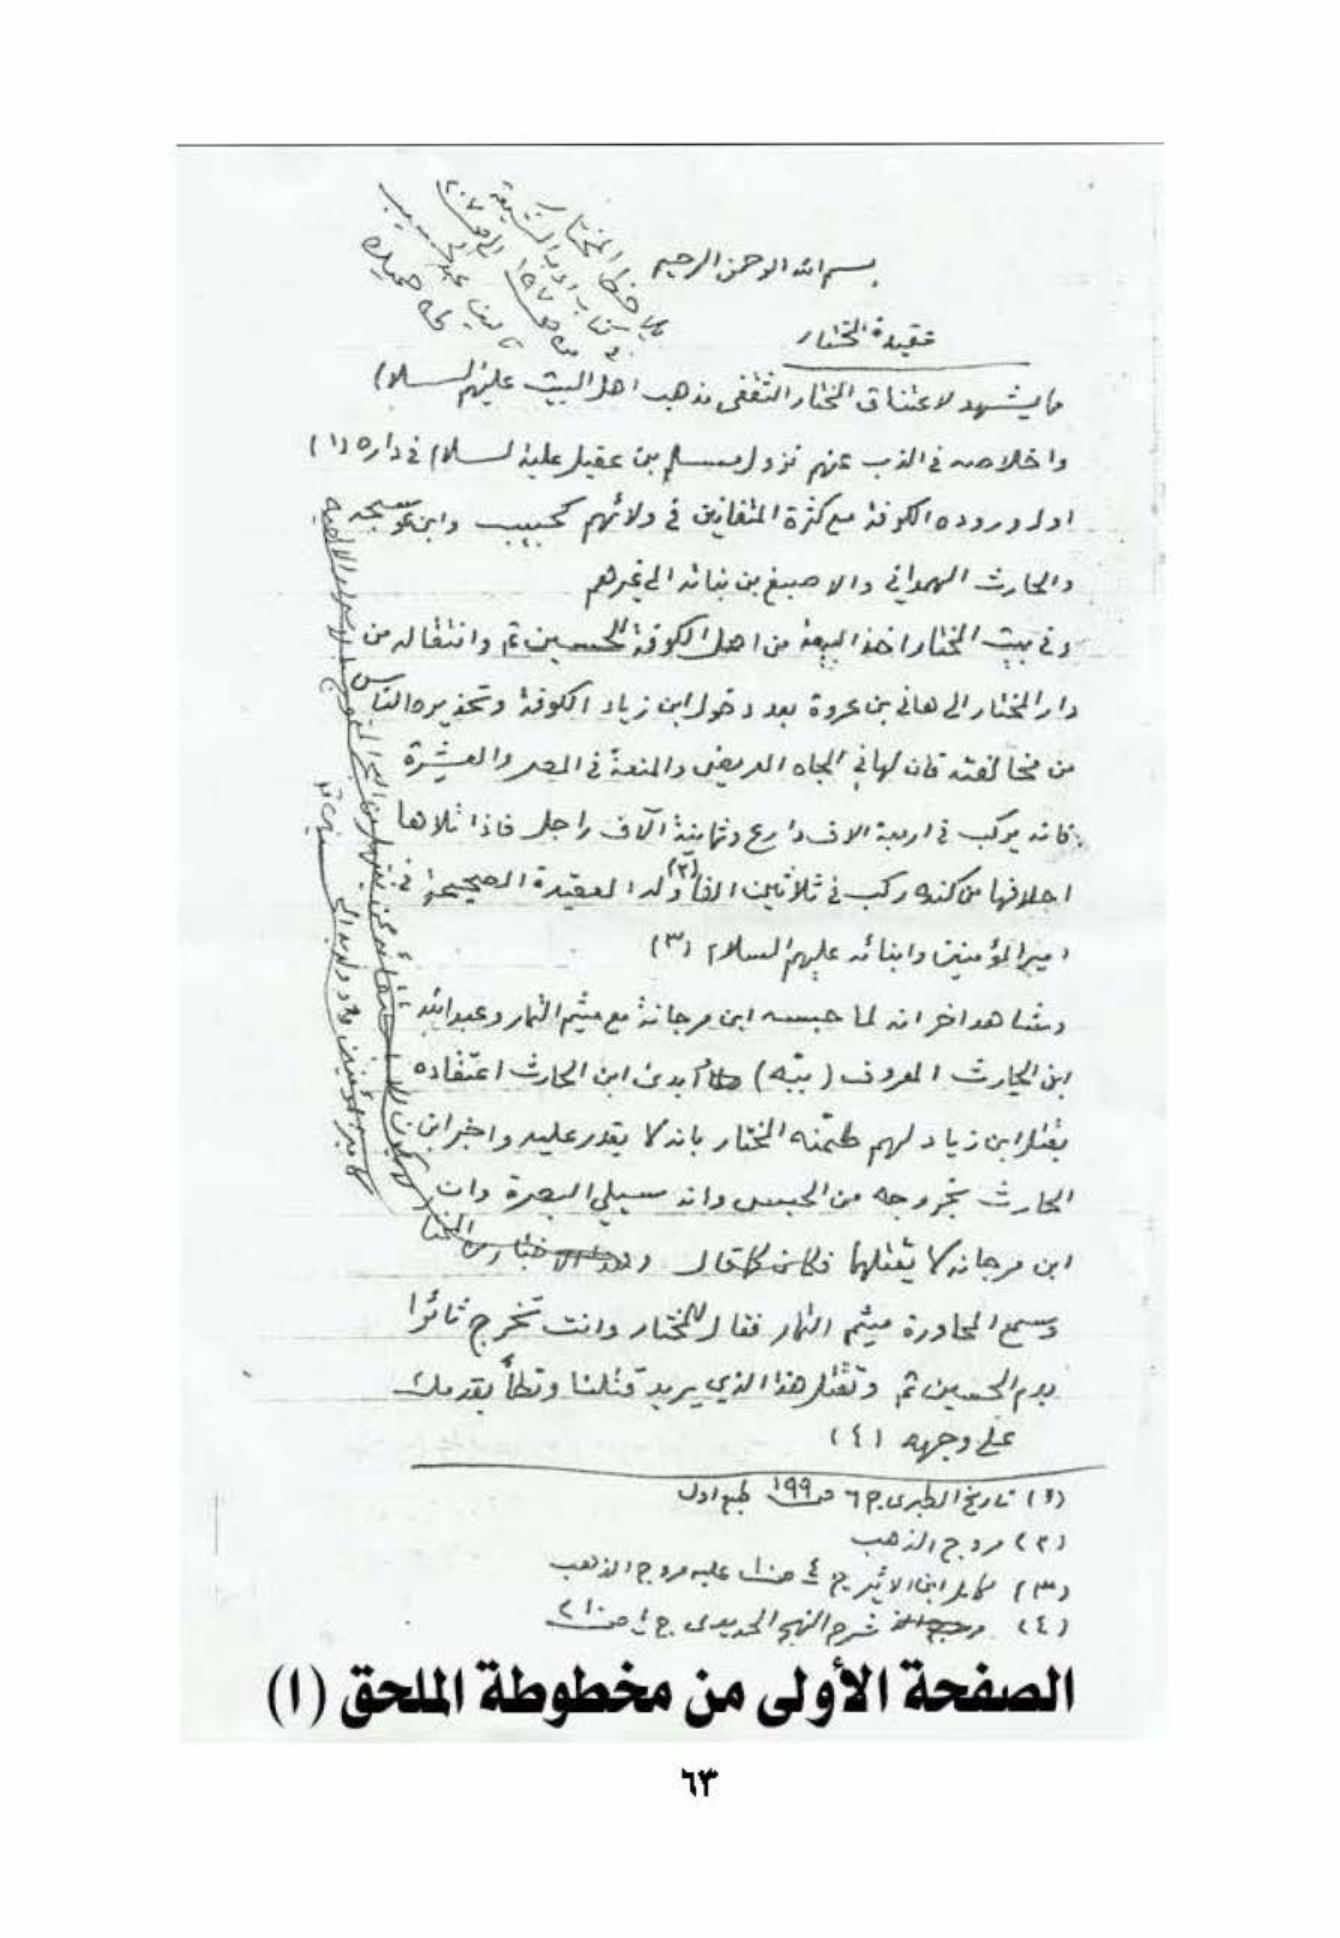 يلاحظ المختار
في كتاب ادب الشيعة
من ص ١٥٧ الى ص ٢٠٧
تاليف عبد الحسيب
طه حميده
بسم الله الرحمن الرحيم
عقيدة المختار
مايشهد لاعتناق المختار الثقفي مذهب اهل البيت عليهم السلام
واخلاصه في الذب عنهم نزول مسلم بن عقيل عليه السلام في داره (١)
اول وروده الكوفة مع كثرة المتفانين في ولائهم كحبيب وابن عوسجه
والحارث الهمداني والاصبغ بن نباته الى غيرهم
وفي بيت المختار اخذ البيعة من اهل الكوفة للحسين ع وانتقاله من
دار المختار الى هاني بن عروة بعد دخول ابن زياد الكوفة وتحذيره الناس
من مخالفته فان لهاني الجاه العريض والمنعة في المصر والعشيرة
فانه يركب في اربعة الاف دارع وثمانية آلاف راجل فاذا تلاها
احلافها من كنده ركب في ثلاثين الفا (٢) ولد العقيدة الصحيحة في
امير المؤمنين وابنائه عليهم السلام (٣)
وشاهد اخر انه لما حبسه ابن مرجانة مع ميثم التمار وعبد الله
ابن الحارث المعروف (ببّه) وأبدى ابن الحارث اعتقاده
بقتل ابن زياد لهم طمّنه المختار بانه لا يقدر عليه واخبر ابن
الحارث بخروجه من الحبس وانه سيلي البصرة وان
ابن مرجانه لا يقتلهما فكان كما قال
وسمع المحاورة ميثم التمار فقال للمختار وانت تخرج ثائرا
بدم الحسين ع وتقتل هذا الذي يريد قتلنا وتطأ بقدمك
على وجهه (٤)
(١) تاريخ الطبري ج ٦ ص ١٩٩ طبع اول
(٢) مروج الذهب
(٣) كامل ابن الاثير ج ٤ ص عليه مروج الذهب
(٤) شرح النهج الحديدي ج ١ ص ٢١٠
الصفحة الأولى من مخطوطة الملحق (١)
٦٣